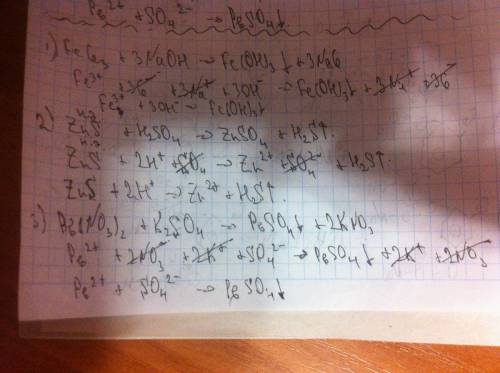 Pb²⁺ + SO₄²⁻ → PbSO₄↓
1) FeCl₃ + 3NaOH → Fe(OH)₃↓ + 3NaCl
Fe³⁺ + 3Cl⁻ + 3Na⁺ + 3OH⁻ → Fe(OH)₃↓ + 3Na⁺ + 3Cl⁻
Fe³⁺ + 3OH⁻ → Fe(OH)₃↓
2) ZnS + H₂SO₄ → ZnSO₄ + H₂S↑.
ZnS + 2H⁺ + SO₄ → Zn²⁺ + SO₄²⁻ + H₂S↑.
ZnS + 2H⁺ → Zn²⁺ + H₂S↑.
3) Pb(NO₃)₂ + K₂SO₄ → PbSO₄↓ + 2KNO₃
Pb²⁺ + 2NO₃⁻ + 2K⁺ + SO₄²⁻ → PbSO₄↓ + 2K⁺ + 2NO₃⁻
Pb²⁺ + SO₄²⁻ → PbSO₄↓